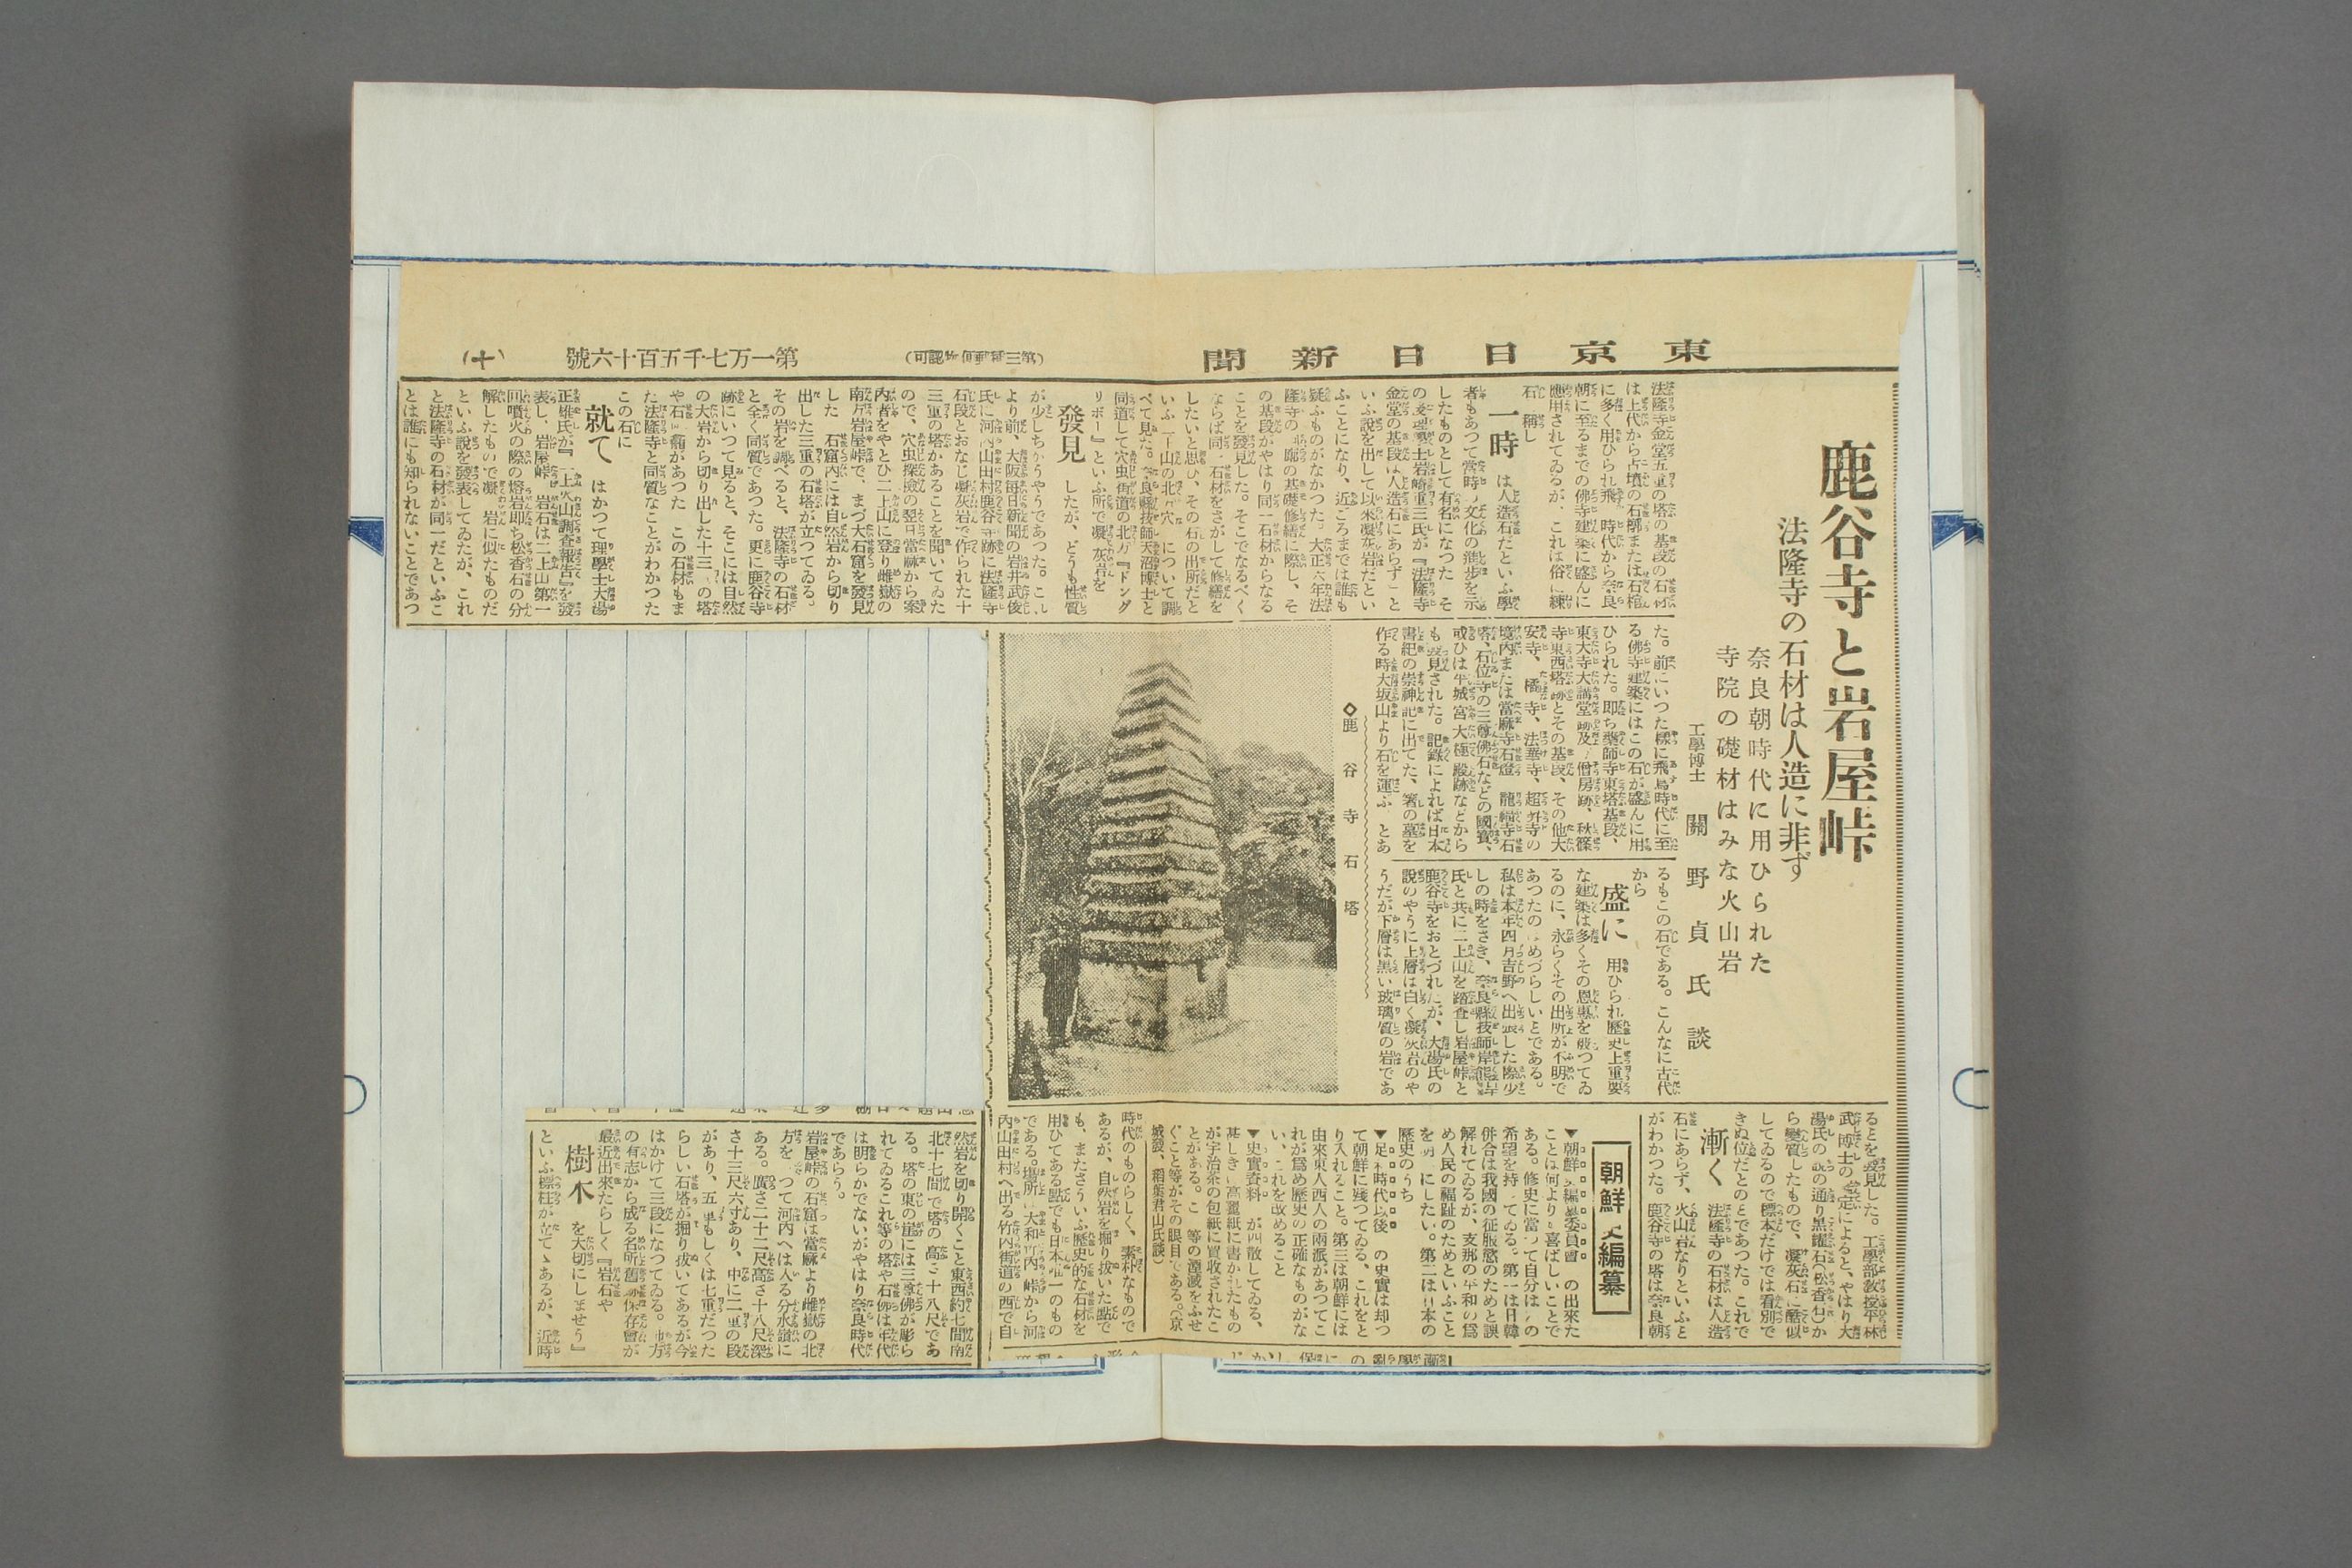 東京日日新聞
(第三種郵便物認可)
第一万七千五百十六號
(十)
鹿谷寺と岩屋峠
法隆寺の石材は人造に非ず
奈良朝時代に用ひられた
寺院の礎材はみな火山岩
工學博士 關野貞氏談
法隆寺金堂五重の塔の基段の石材
は上代から古墳の石槨または石棺
に多く用ひられ飛 時代から奈良
朝に至るまでの佛寺建築に盛んに
應用されてゐるが、これは俗に練
石 稱し
一時 は人造石だといふ學
者もあつて當時 文化の進步を示
したものとして有名になつた そ
の 理學士岩崎重三氏が『法隆寺
金堂の基段は人造石にあらず』と
いふ說を出して以來凝灰岩だとい
ふことになり、近ころまでは誰も
疑ふものがなかつた。大正六年法
隆寺の 廊の基礎修繕に際し、そ
の基段がやはり同一石材からなる
ことを發見した。そこでなるべく
ならば同一石材をさがして修繕を
したいと思ひ、その石の出所だと
いふ二上山の北 穴 について調
べて見た。奈良縣技師天沼博士と
同道して穴虫街道の北方『ドング
リボー』といふ所で凝灰岩を
發見 したが、どうも性質
が少しちがうやうであつた。これ
より前、大阪每日新聞の岩井武俊
氏に河内山田村鹿谷寺跡に法隆寺
石段とおなじ凝灰岩で作られた十
三重の塔があることを聞いてゐた
ので、穴虫探險の翌日當麻から案
内者をやとひ二上山に登り雌嶽の
南方岩屋峠で、まづ大石窟を發見
した 石窟内には自然岩から切り
出した三重の石塔が立つてゐる。
その岩を調べると、法隆寺の石材
と全く同質であつた。更に鹿谷寺
跡にいつて見ると、そこには自然
の大岩から切り出した十三 の塔
や石 があつた この石材もま
た法隆寺と同質なことがわかつた
この石に
就て はかつて理學士大湯
正雄氏が『二上火山調査報告』を發
表し、岩屋峠 岩石は二上山第一
回噴火の際の熔岩即ち松香石の分
解したもので凝 岩に似たものだ
といふ說を發表してゐたが、これ
と法隆寺の石材が同一だといふこ
とは誰にも知られないことであつ
た。前にいつた樣に飛鳥時代に至
る佛寺建築にはこの石が盛んに用
ひられた。即ち藥師寺東塔基段、
東大寺大講堂跡及 僧房跡、秋篠
寺東西塔跡とその基段、その他大
安寺、橘寺、法華寺、超昇寺の
境内または當麻寺石燈 龍 寺石
塔、石位寺の三尊佛石などの國寶、
或ひは平城宮大極殿跡などから
も發見された。記錄によれば日本
書紀の崇神記に出てた、箸の墓を
作る時大坂山より石を運ぶ とあ
るもこの石である。こんなに古代
から
盛に 用ひられ歷史上重要
な建築は多くその恩惠を被つてゐ
るのに、永らくその出所が不明で
あつたの めづらしいとである。
私は本年四月吉野へ出張した際少
しの時をさき、奈良縣技師岸熊吉
氏と共に二上山を踏査し岩屋峠と
鹿谷寺をおとづれたが、大湯氏の
說のやうに上層は白く凝灰岩のや
うだが下層は黑い玻璃質の岩であ
◇鹿谷寺石塔
るとを發見した。工學部敎授平林
武 博士の鑑定によると、やはり大
湯氏の說の通り黑耀石(松香石)か
ら變質したもので、凝灰石に酷似
してゐるので標本だけでは看別で
きぬ位だとのとであつた。これで
漸く 法隆寺の石材は人造
石にあらず、火山岩なりといふと
がわかつた。鹿谷寺の塔は奈良朝
時代のものらしく、素朴なもので
あるが、自然岩を掘り拔いた點で
も、またさういふ歷史的な石材を
用ひてある點でも日本唯一のもの
である。場所 大和竹内峠から河
内山田村へ出る竹内街道の西で自
然岩を切り開くこと東西約七間南
北十七間で塔の高さ十八尺であ
る。塔の東の崖には三尊佛が彫ら
れてゐるこれ等の塔や石佛は年代
は明らかでないがやはり奈良時代
であらう。
岩屋峠の石窟は當麻より雌嶽の北
方を つて河内へは入る分水嶺に
ある。廣さ二十二尺高さ十八尺深
さ十三尺六寸あり、中に二重の段
があり、五重もしくは七重だつた
らしい石塔が掘り拔いてあるが今
はかけて三段になつてゐる。地方
の有志から成る名所舊跡保存會が
最近出來たらしく『岩石や
樹木 を大切にしませう』
といふ標柱が立てゝあるが、近時
朝鮮史編纂
▼朝鮮史編纂委員會 の出來た
ことは何よりも喜ばしいことで
ある。修史に當つて自分は の
希望を持つてゐる。第一は日韓
併合は我國の征服慾のためと誤
解れてゐるが、支那の平和の爲
め人民の福祉のためといふこと
を明 にしたい。第二は日本の
歷史のうち
▼足利時代以後 の史實は却つ
て朝鮮に殘つてゐる、これをと
り入れること。第三は朝鮮には
由來東人西人の兩派があつてこ
れが爲め歷史の正確なものがな
い、これを改めること
▼史實資料 が四散してゐる、
甚しき 高麗紙に書かれたもの
が宇治茶の包紙に買收されたこ
とがある。こ 等の湮滅をふせ
ぐこと等がその眼目である。(京
城發、稻葉君山氏談)